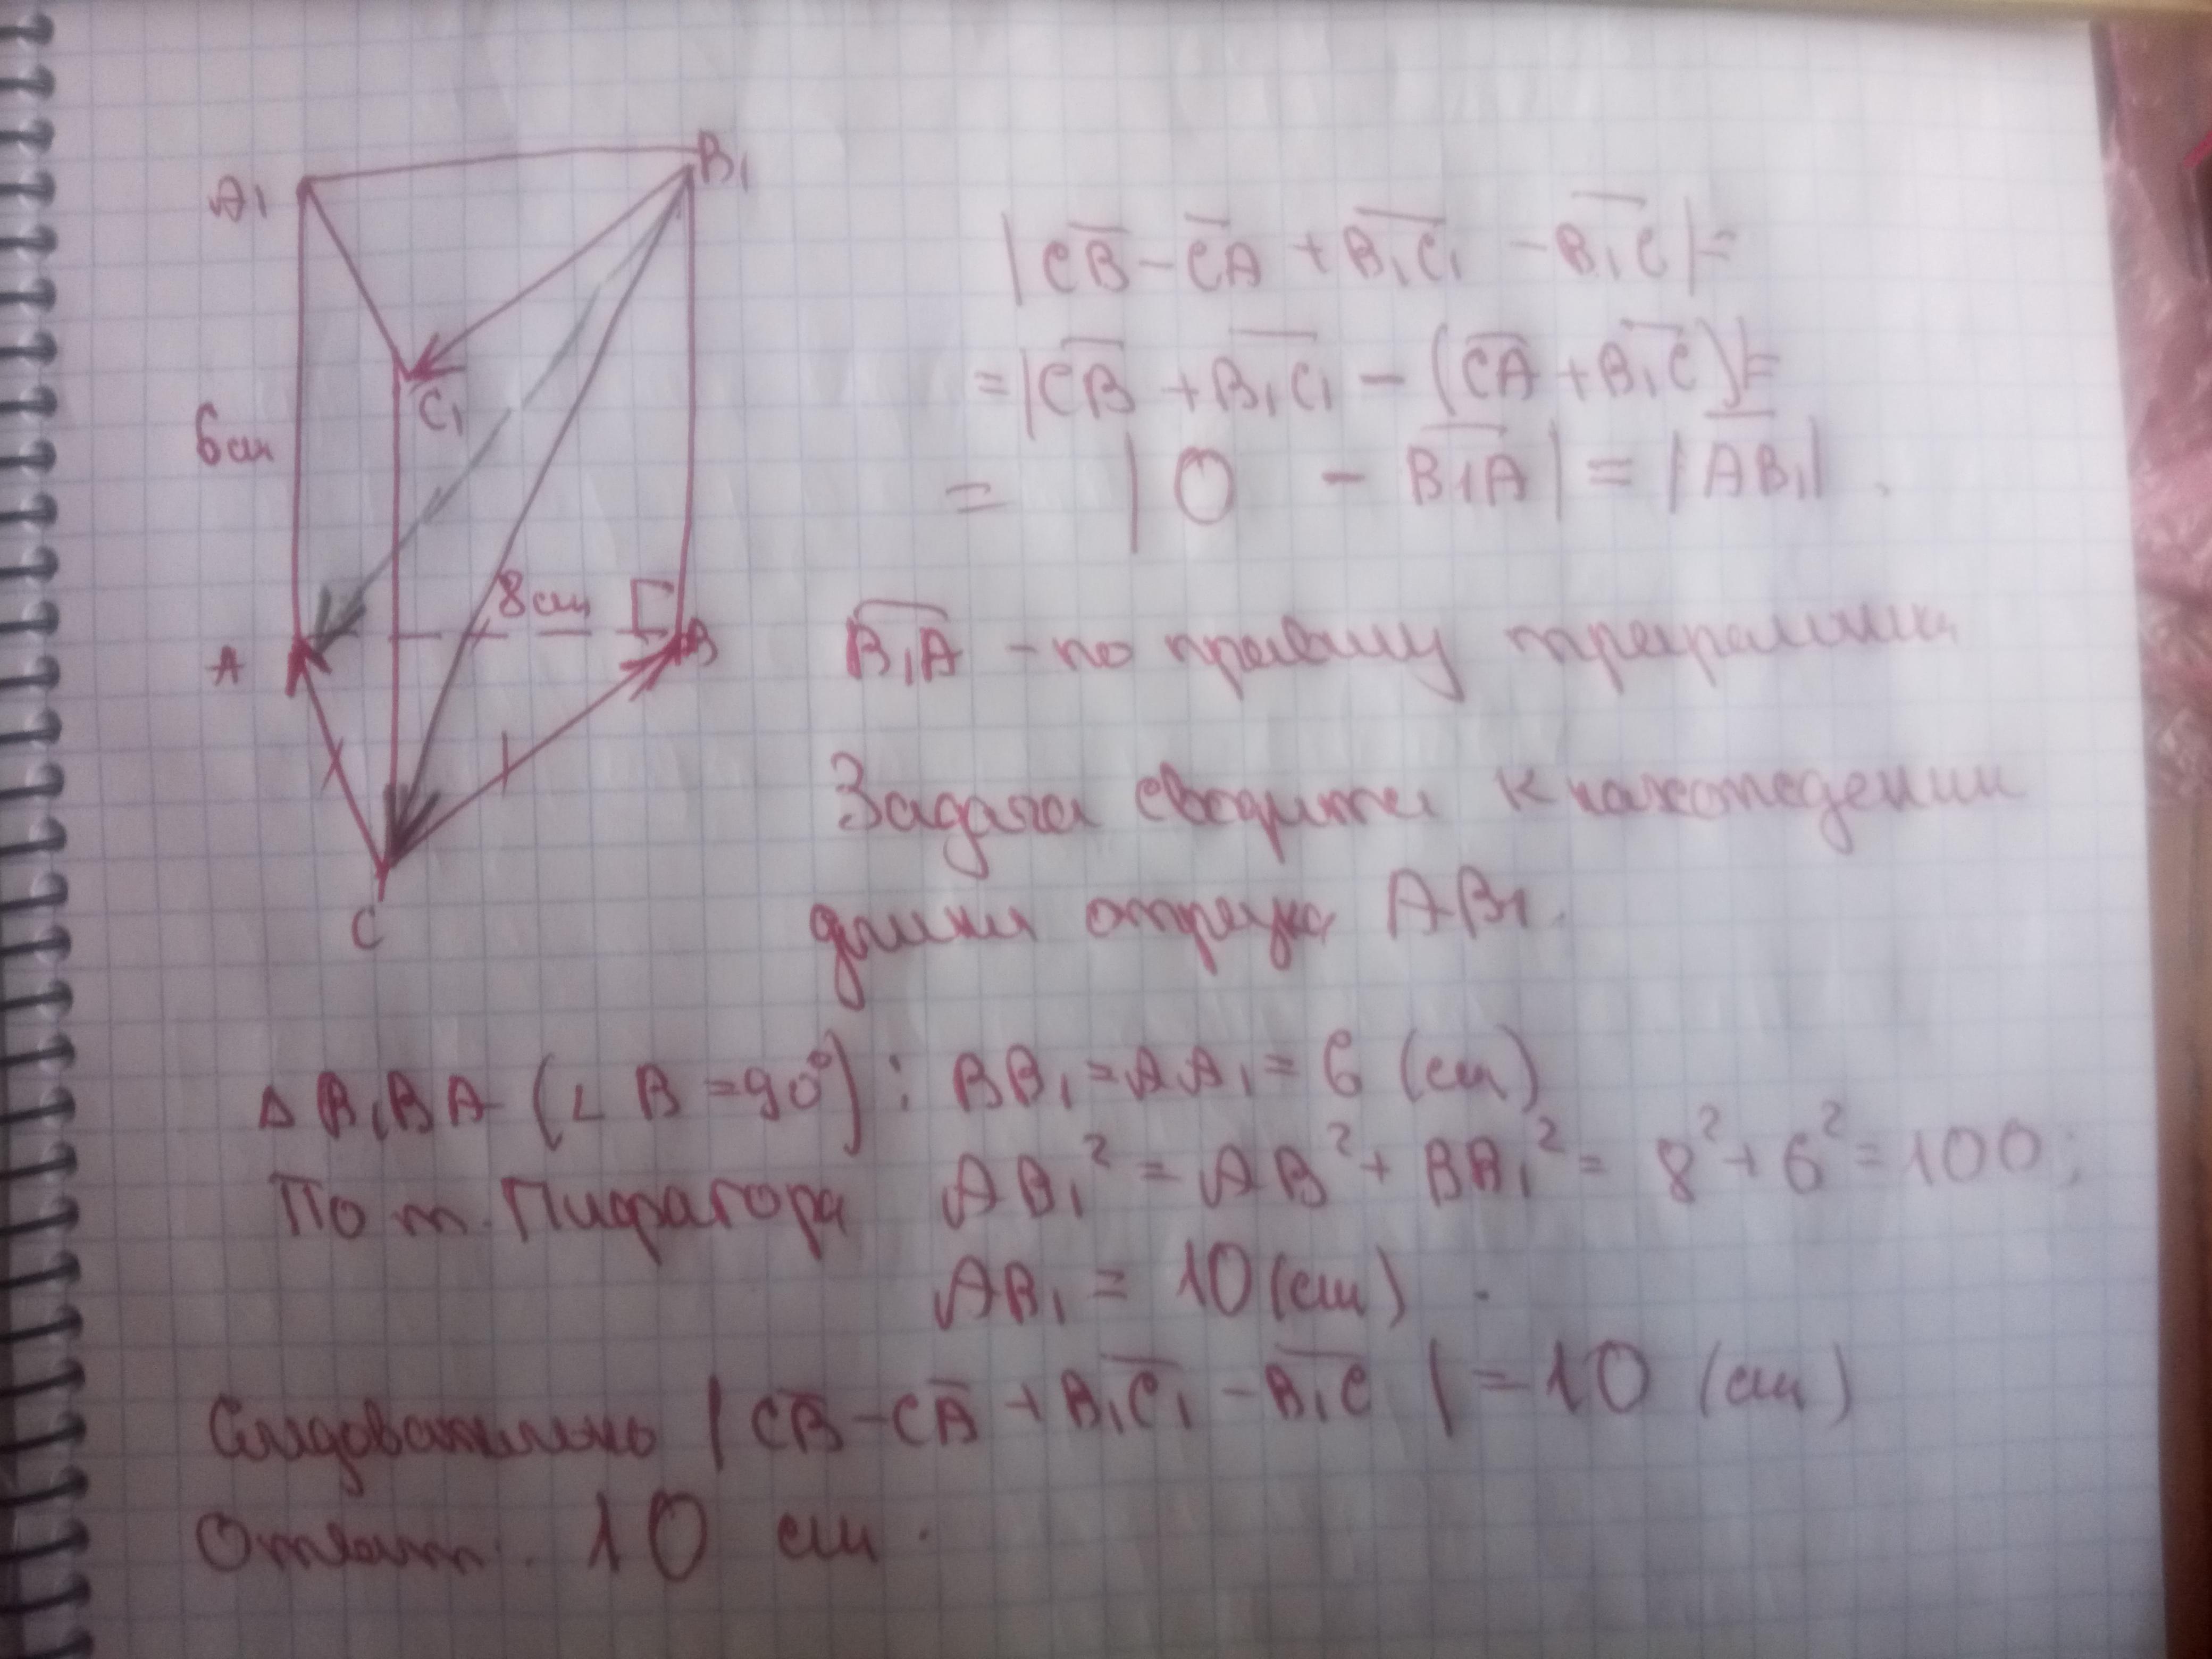 A₁
B₁
C₁
6 см
8 см
A
B
C
|C̅B̅ − C̅A̅ + B̅₁C̅₁ − B̅₁C̅| =
= |C̅B̅ + B̅₁C̅₁ − (C̅A̅ + B̅₁C̅)| =
= |0 − B̅₁A̅| = |A̅B̅₁|.
B̅₁A̅ – по правилу треугольника
Задача сводится к нахождению
длины отрезка AB₁.
Δ B₁BA (∠ B = 90°): BB₁ = AA₁ = 6 (см)
По т. Пифагора AB₁² = AB² + BB₁² = 8² + 6² = 100;
AB₁ = 10 (см).
Следовательно |C̅B̅ − C̅A̅ + B̅₁C̅₁ − B̅₁C̅| = 10 (см)
Ответ: 10 см.